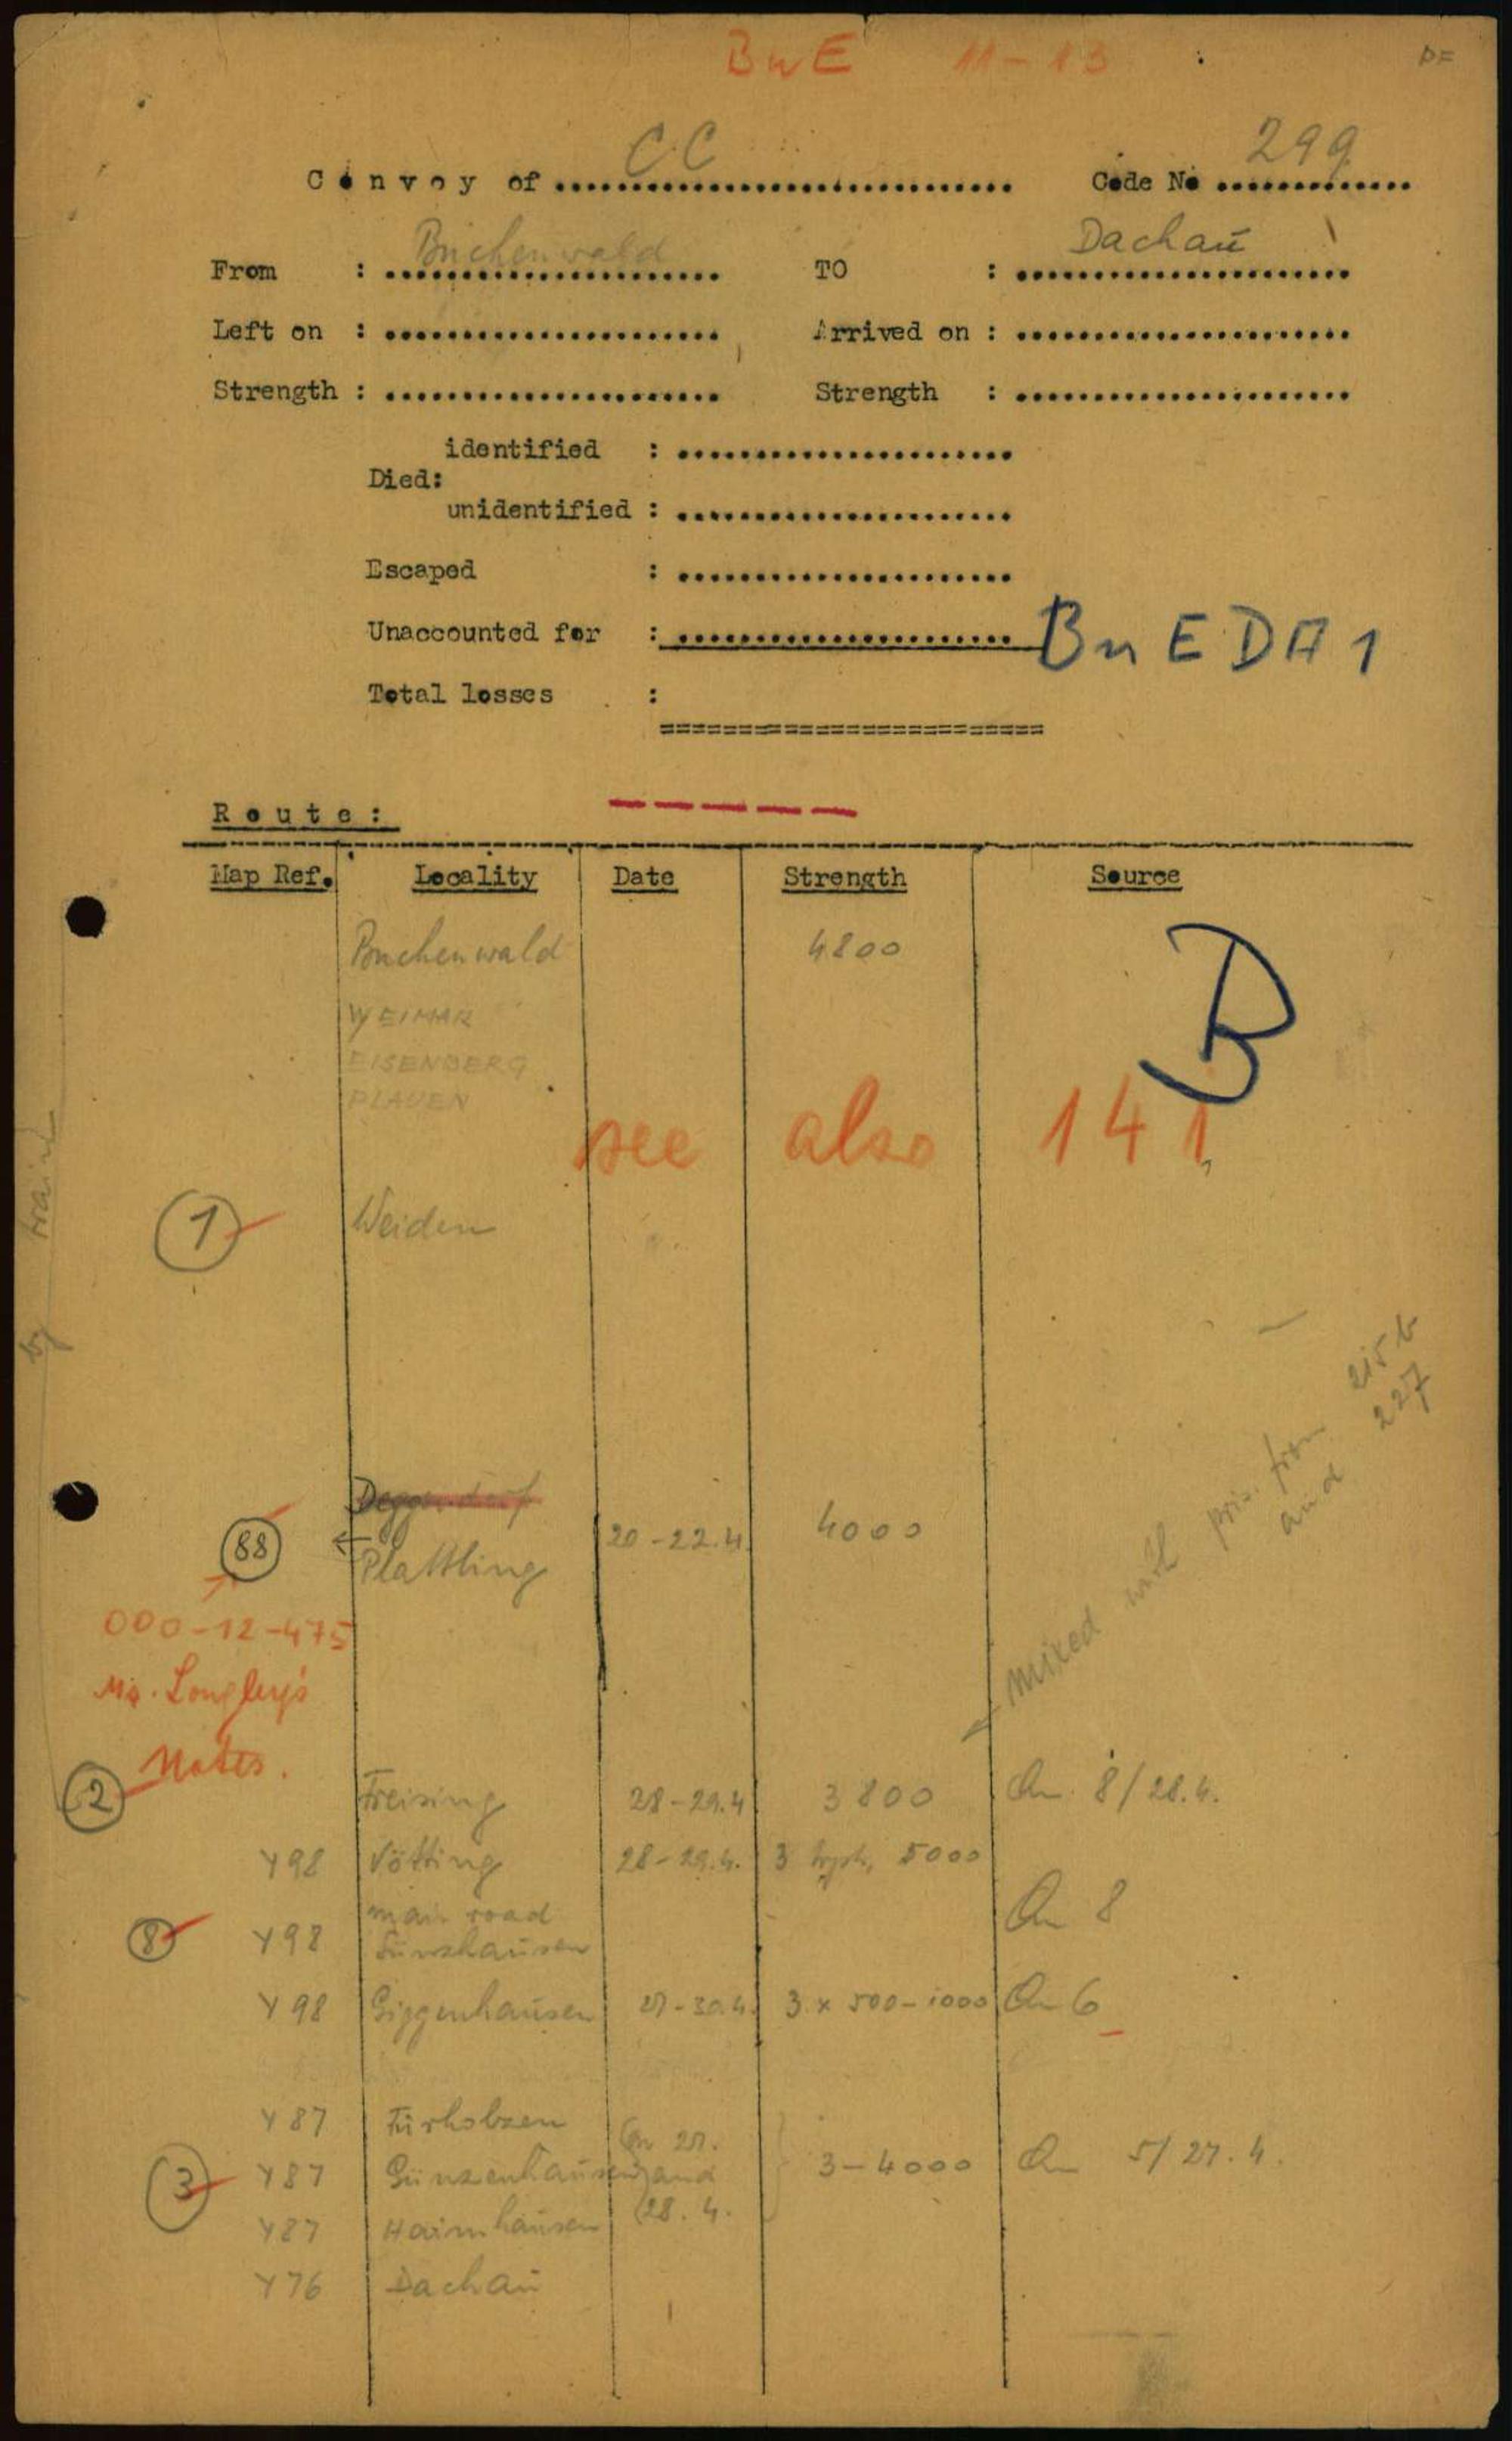 BuE 11-13
DE
Convoy of CC Code No 299
From : Buchenwald TO : Dachau
Left on : Arrived on :
Strength : Strength :
identified :
Died:
unidentified :
Escaped :
Unaccounted for : BuEDA1
Total losses :
Route:
Map Ref. Locality Date Strength Source
Buchenwald 4800
B
WEIMAR
EISENBERG
PLAUEN
see also 141
train
by
1 Weiden
215b
227
mixed with pris. from
and
Deggendorf
88 Plattling 20-22.4 4000
000-12-475
Mr. Longley's
Notes.
2 Freising 28-29.4 3800 8/28.4.
Y98 Vötting 28-29.4. 3 5000
main road
8 Y98 Sünzhausen 8
Y98 Giggenhausen 27-30.4. 3 x 500-1000 6
Y87 Fürholzen
27.
3 Y87 Günzenhausen and 3-4000 5/27.4.
Y87 Haimhausen 28.4.
Y76 Dachau